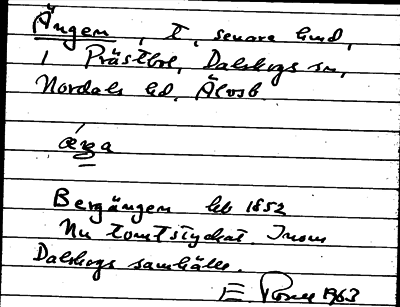 Ängen, t, senare hmd,
i Prästbol, Dalskogs sn,
Nordals hd, Älvsb.
æ̨ŋa
Bergängen hb 1852
Nu tomtstyckat. Inom
Dalskogs samhälle.
E 1963